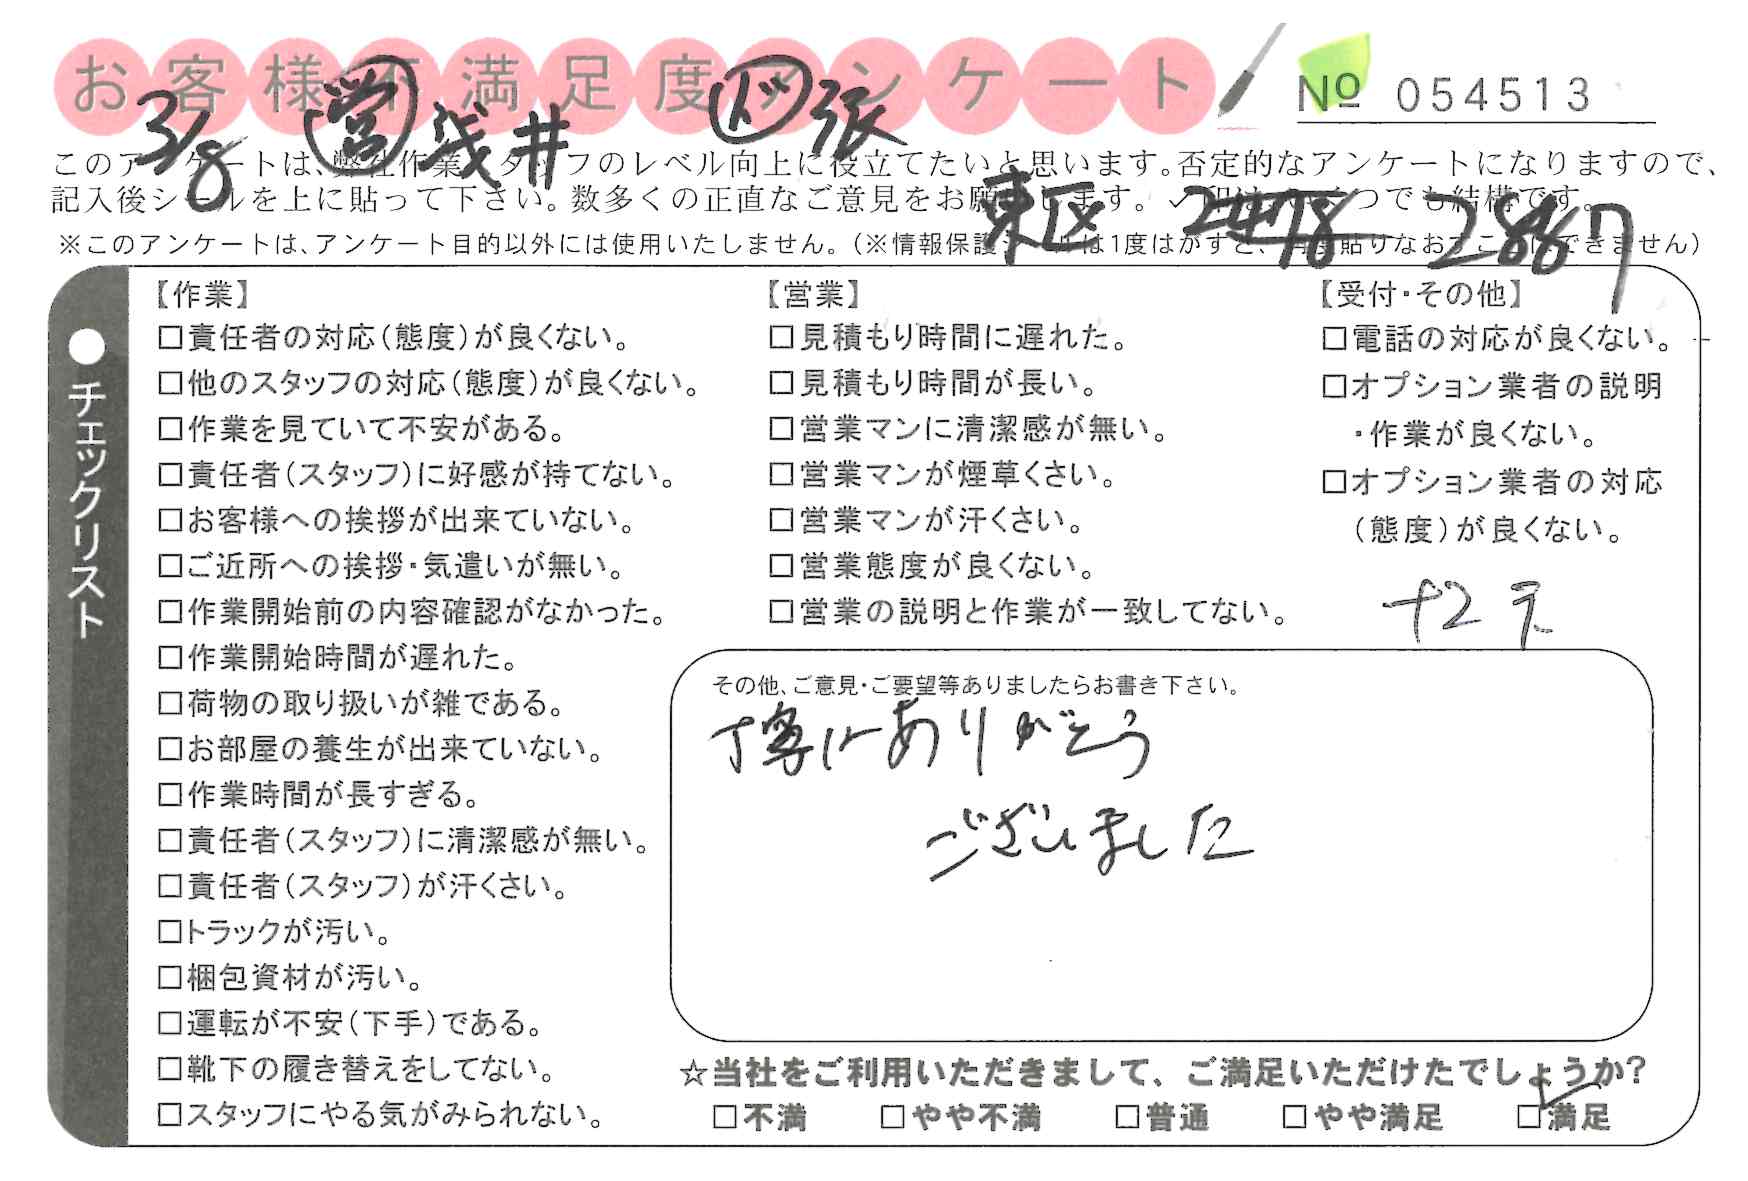 お客様不満足度アンケート
№ 054513
3/8 営 浅井 ド 張
このアンケートは、弊社作業スタッフのレベル向上に役立てたいと思います。否定的なアンケートになりますので、
記入後シールを上に貼って下さい。数多くの正直なご意見をお願いします。✓印はいくつでも結構です。
東区 2887
※このアンケートは、アンケート目的以外には使用いたしません。（※情報保護シールは1度はがすと、再度貼りなおすことはできません）
●チェックリスト
【作業】
□責任者の対応（態度）が良くない。
□他のスタッフの対応（態度）が良くない。
□作業を見ていて不安がある。
□責任者（スタッフ）に好感が持てない。
□お客様への挨拶が出来ていない。
□ご近所への挨拶・気遣いが無い。
□作業開始前の内容確認がなかった。
□作業開始時間が遅れた。
□荷物の取り扱いが雑である。
□お部屋の養生が出来ていない。
□作業時間が長すぎる。
□責任者（スタッフ）に清潔感が無い。
□責任者（スタッフ）が汗くさい。
□トラックが汚い。
□梱包資材が汚い。
□運転が不安（下手）である。
□靴下の履き替えをしてない。
□スタッフにやる気がみられない。
【営業】
□見積もり時間に遅れた。
□見積もり時間が長い。
□営業マンに清潔感が無い。
□営業マンが煙草くさい。
□営業マンが汗くさい。
□営業態度が良くない。
□営業の説明と作業が一致してない。
【受付・その他】
□電話の対応が良くない。
□オプション業者の説明
・作業が良くない。
□オプション業者の対応
（態度）が良くない。
その他、ご意見・ご要望等ありましたらお書き下さい。
丁寧にありがとう
ございました
☆当社をご利用いただきまして、ご満足いただけたでしょうか？
□不満 □やや不満 □普通 □やや満足 ☑満足